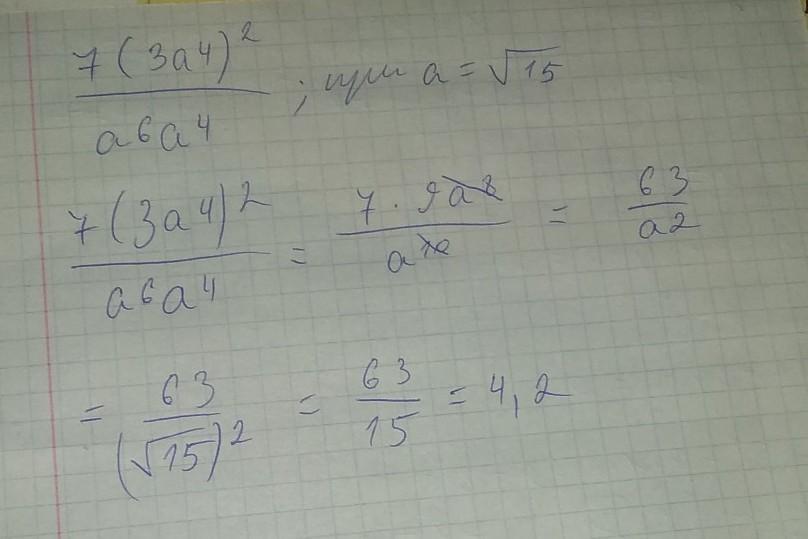 7(3a4)² / a6a4 ; при a = √15
7(3a4)² / a6a4 = 7 · 9a8 / a10 = 63 / a2
= 63 / (√15)² = 63 / 15 = 4,2